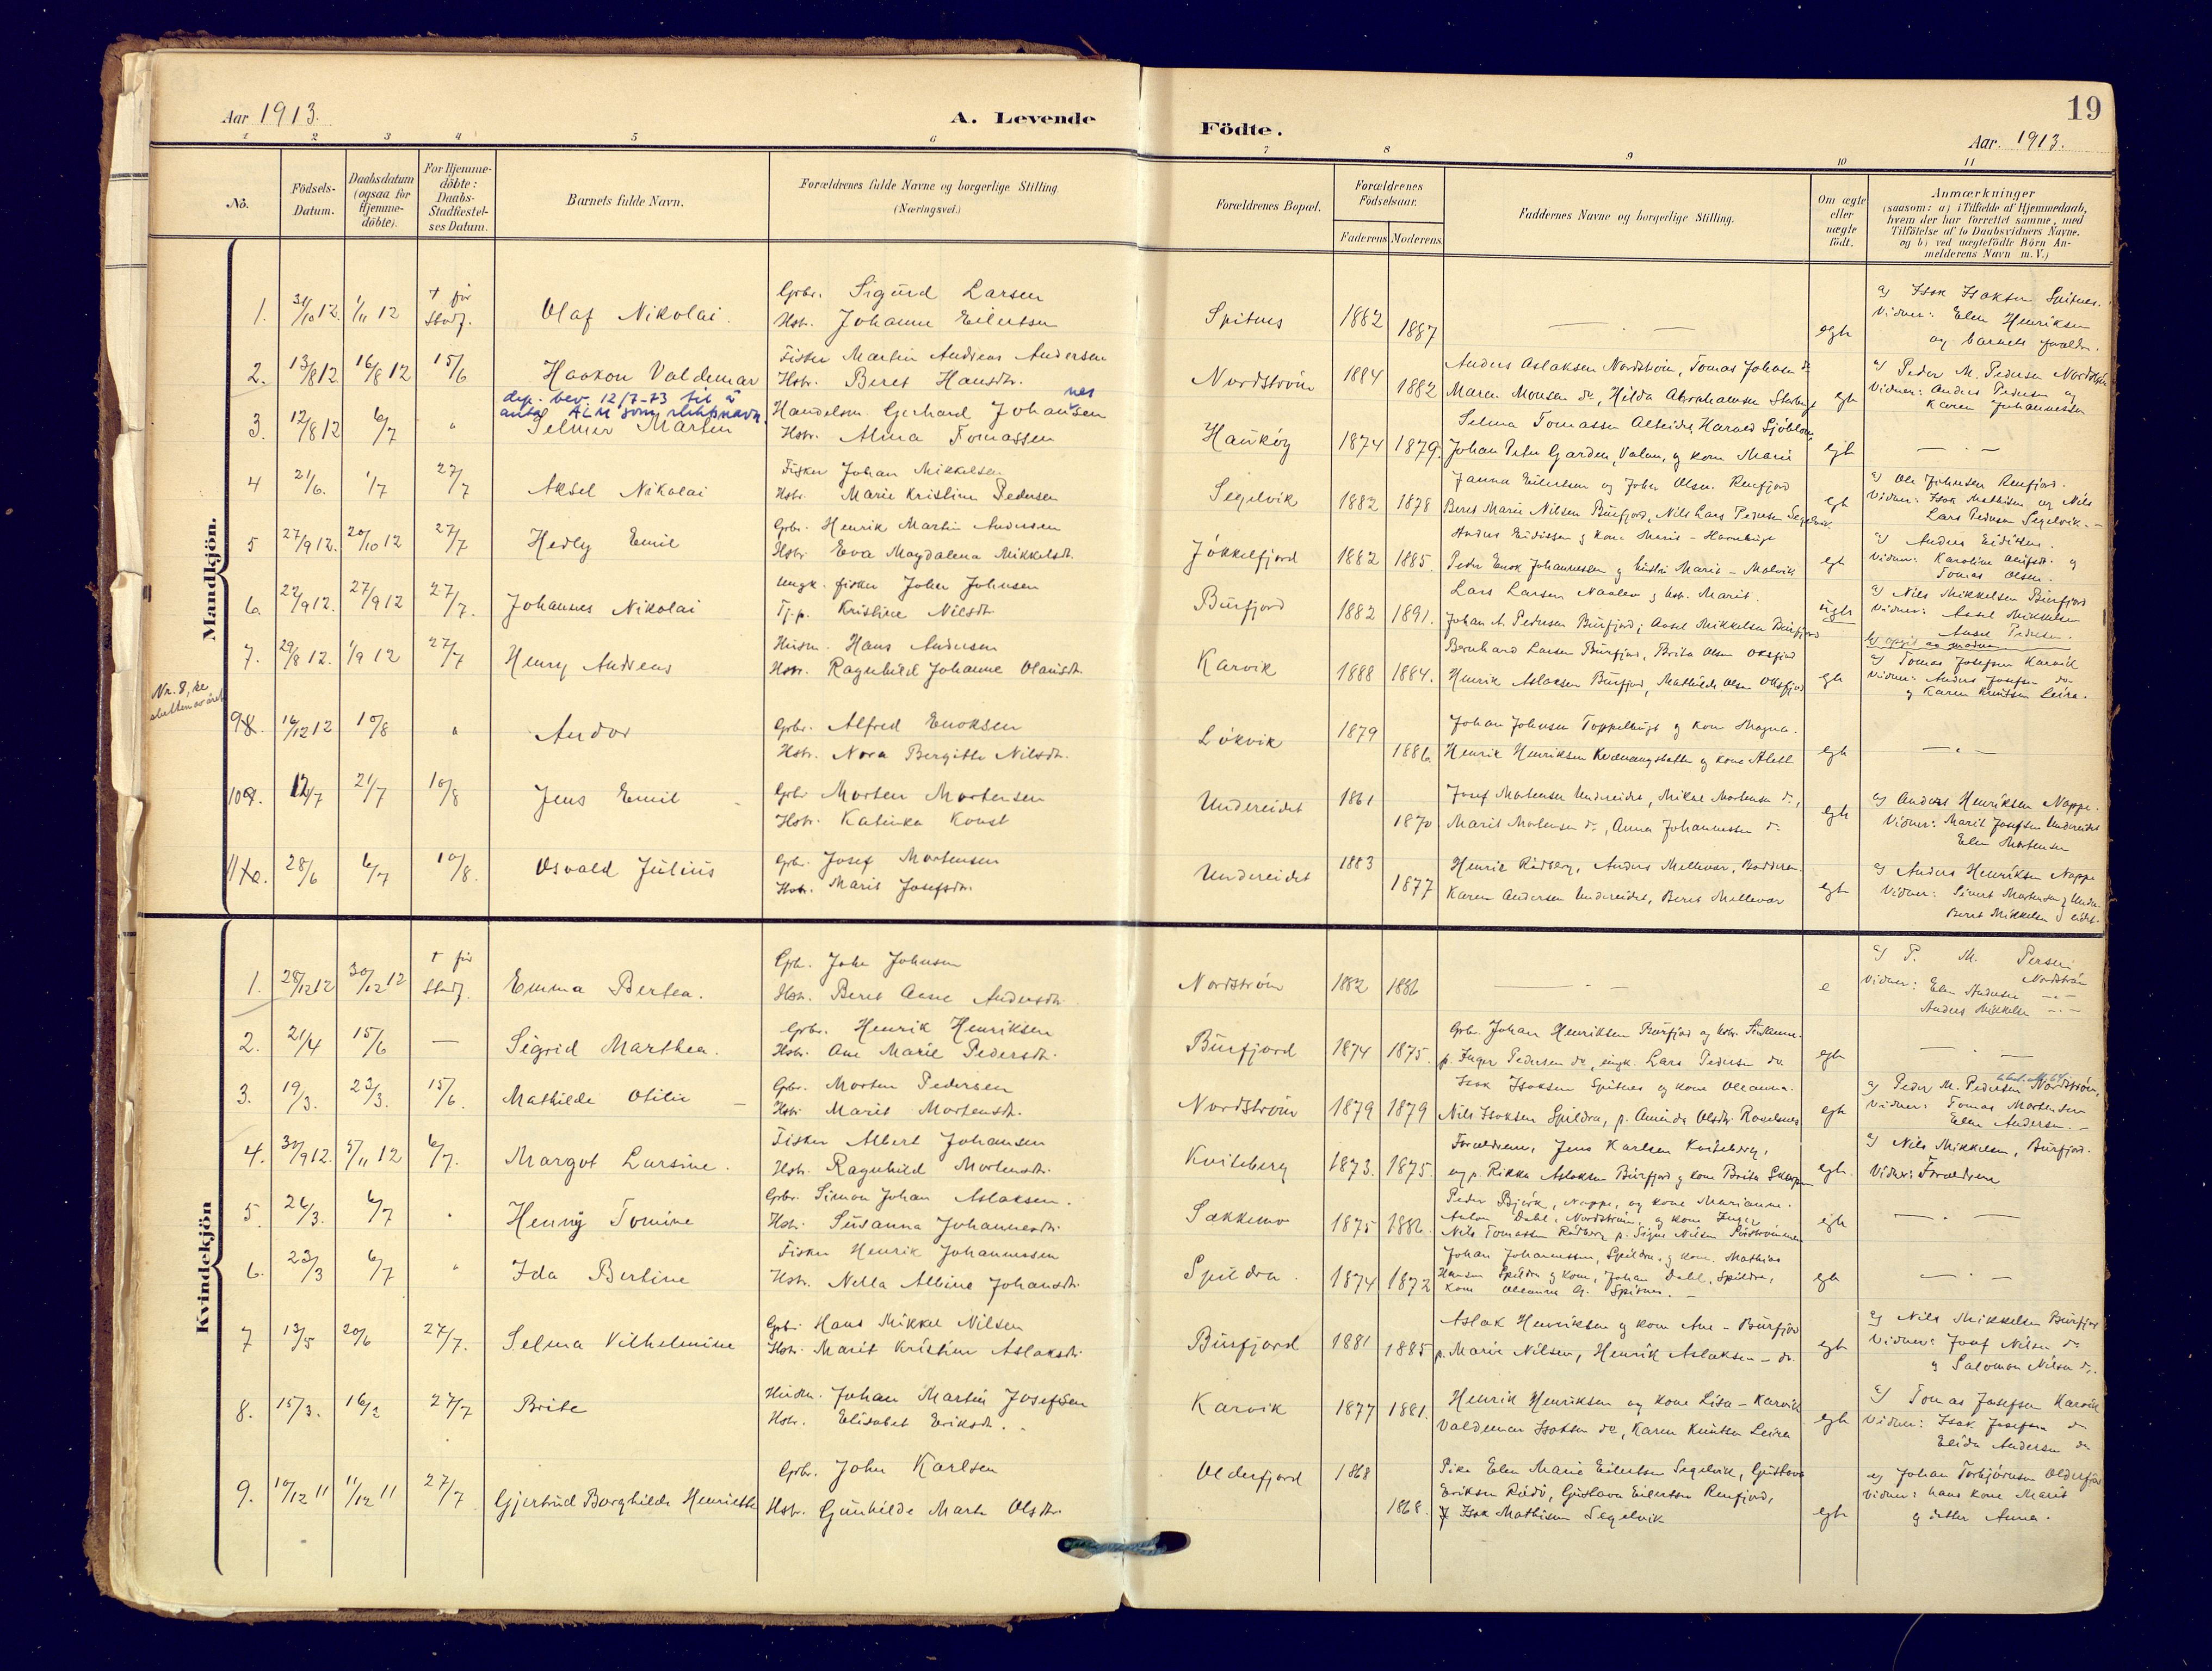 19
Aar 1913.
A. Levende
Födte.
Aar. 1913.
1 2 3 4 5 6 7 8 9 10 11
No.
Födsels-Datum.
Daabsdatum (ogsaa for Hjemme-döbte).
For Hjemme-döbte: Daabs-Stadfæstel-ses Datum.
Barnets fulde Navn.
Forældrenes fulde Navne og borgerlige Stilling.
(Næringsvei.)
Forældrenes Bopæl.
Forældrenes Födselsaar.
Faderens Moderens
Faddernes Navne og borgerlige Stilling.
Om ægte eller uægte födt.
Anmærkninger
(saasom: a) i Tilfælde af Hjemmedaab,
hvem der har forrettet samme, med
Tilföielse af to Daabsvidners Navne,
og b) ved uægtefödte Börn An-
melderens Navn m. V.)
Mandkjön.
1. 31/10 12. 1/11 12 † før Stadf. Olaf Nikolai.
Gbr. Sigurd Larsen
Hstr. Johanne Eilertsen
Spitnes 1882 1887 egte
a) Isak Isaksen Spitnes.
Vidner: Elen Henriksen
og barnets forældre.
2. 13/8 12 16/8 12 15/6 Haakon Valdemar
Fisker Martin Andreas Andersen
Hstr. Beret Hansdtr.
Nordström 1884 1882
Anders Aslaksen Nordström, Tomas Johnsen do
Maren Monsen do, Hilda Abrahamsen
egte
a) Peder M. Pedersen Nordström
Vidner: Anders Pedersen og
Karen Johannessen
dep. bev. 12/7-73 til å
antag Alm som slektsnavn.
3. 12/8 12 6/7 " Selmer Martin
Handelsm. Gerhard Johansen
nes
Hstr. Alma Tomassen
Hauköy 1874 1879.
Selma Tomassen Alteidet, Harald Sjöblom,
Johan Peter Garden, Valan, og kone Marie
egte
4 21/6. 1/7 27/7 Aksel Nikolai
Fisker Johan Mikkelsen
Hstr. Marie Kristine Pedersen
Segelvik 1882 1878
Janna Eilertsen og John Olsen Reinfjord
Beret Marie Nilsen Burfjord, Nils Lars Pedersen Segelvik.
egte
a) Ole Johnsen Reinfjord.
Vidner: Isak Mathisen og Nils
Lars Pedersen Segelvik.
5 27/9 12. 20/10 12 27/7 Hedly Emil
Gbr. Henrik Martin Andersen
Hstr. Eva Magdalena Mikkelsdtr.
Jökkelfjord 1882 1885.
Peder Enok Johannessen og hustru Marie - Malvik
egte
a) Anders Eidissen.
Vidner: Karoline og
Tomas Olsen.
6. 22/9 12. 27/9 12 27/7. Johannes Nikolai
Ungk. fisker John Johnsen
Tj.p. Kristine Nilsdtr.
Burfjord 1882 1891.
Lars Larsen Naalen og hstr. Marit.
Johan A. Pedersen Burfjord; Aksel Mikkelsen Burfjord
uegte
a) Nils Mikkelsen Burfjord
Vidner: Aksel Mikkelsen
Aksel Pedersen.
b) opgit av moderen
7. 29/8 12. 1/9 12 27/7 Henry Andreas
Husm. Hans Andersen
Hstr. Ragnhild Johanne Olausdtr.
Karvik 1888 1884.
Bernhard Larsen Burfjord, Brita Olsen Oksfjord
Henrik Aslaksen Burfjord, Mathilde Olsen Oksfjord
egte
a) Tomas Josefsen Karvik
Vidner: Anders Josefsen do
og Karen Knutsen Leira.
Nr. 8, se
slutten av året
98. 16/12 12 10/8 " Andor
Gbr. Alfred Enoksen
Hstr. Nora Bergitte Nilsdtr.
Lökvik 1879 1886.
Johan Johnsen Toppelbugt og kone Magna.
Henrik Henriksen Kvænangsbotten og kone Aleth
egte
109. 12/7 21/7 10/8 Jens Emil
Gbr Morten Mortensen
Hstr. Katinka Konst
Undereidet 1861 1870
Josef Mortensen Undereidet, Mikal Mortensen do,
Marit Mortensen do, Anna Johannessen do
egte
a) Anders Henriksen Noppe.
Vidner: Marit Josefsen Undereidet
Elen Mortensen
1110. 28/6 6/7 10/8. Osvald Julius
Gbr. Josef Mortensen
Hstr. Marit Josefsdtr.
Undereidet 1883 1877
Henrik Rödberg, Anders Mellevær, Badderen
Karen Andersen Undereidet, Beret Mellevær
egte
a) Anders Henriksen Noppe
Vidner: Sivert Mortensen og
Beret Mikkelsen Undereidet.
Kvindekjön
1. 28/12 12 30/12 12 † før Stadf. Emma Bertea.
Gbr. John Johnsen
Hstr. Beret Anne Andersdtr.
Nordström 1882 1886 e
a) P. M. Persen
Nordström
Vidner: Elen Andersen
Anders Mikkelsen
2. 21/4 15/6 — Sigrid Marthea.
Gbr. Henrik Henriksen
Hstr. Ane Marie Pedersdtr.
Burfjord 1874 1875.
Gbr. Johan Henriksen Burfjord og hstr. Susanne.
p. Inger Pedersen do, ungk. Lars Pedersen do.
egte
3. 19/3. 23/3. 15/6. Mathilde Otilie
Gbr. Morten Pedersen
Hstr. Marit Mortensdtr.
Nordström 1879 1879
Isak Isaksen Spitnes og kone Oleanna.
Nils Isaksen Spildra, p. Aminda Olsdtr.
egte
a) Peder M. Pedersen Nordström,
Vidner: Tomas Mortensen
Elen Andersen.
4. 30/9 12. 5/11 12 6/7. Margot Larsine.
Fisker Albert Johansen
Hstr. Ragnhild Mortensdtr.
Kviteberg 1873. 1875.
Forældrene, Jens Karlsen Kviteberg,
og p. Rikka Aslaksen Burfjord og kone Brita
egte.
a) Nils Mikkelsen, Burfjord.
Vidner: Forældrene
5. 26/3. 6/7 " Henny Tomine
Gbr. Simon Johan Aslaksen.
Hstr. Susanna Johannesdtr.
Sakkemo 1875 1886.
Peder Björk, Noppe, og kone Marianne.
Anton Dahl, Nordström, og kone Inger
Nils Tomassen Rödberg, p. Signe Nilsen Sörströmmen
egte
6. 23/3 6/7 " Ida Bertine
Fisker Henrik Johannessen
Hstr. Nella Albine Johansdtr.
Spildra. 1874 1872
Johan Johannessen, Spildra, og kone, Mathias
Hansen Spildra og kone, Johan Dahl, Spildra,
Kone Oleanna G. Spitnes.
egte
7 13/5 20/6 27/7. Selma Vilhelmine
Gbr. Hans Mikkel Nilsen
Hstr. Marit Kristine Aslaksdtr.
Burfjord 1881 1885
Aslak Henriksen og kone Ane - Burfjord
p. Marie Nilsen, Henrik Aslaksen - do.
egte
a) Nils Mikkelsen Burfjord
Vidner: Josef Nilsen do
og Salomon Nilsen do.
8. 15/3. 16/3 27/7 Brite
Husm. Johan Martin Josefsen
Hstr. Elisabet Eriksdtr.
Karvik 1877 1881.
Henrik Henriksen og kone Lisa - Karvik
Valdemar Isaksen do, Karen Knutsen Leira
egte
a) Tomas Josefsen Karvik
Vidner: Isak Josefsen do
Elida Andersen do
9. 10/12 11 11/12 11 27/7 Gjertrud Borghilde Henriette
Gbr. John Karlsen
Hstr. Gunhilde Marta Olsdtr.
Olderfjord 1868 1868.
Pike Elen Marie Eilertsen Segelvik, Gustava
Eriksen Rödö, Gustava Eilertsen Reinfjord,
Isak Mathisen Segelvik
egte
a) Johan Torbjörnsen Olderfjord
Vidner: hans kone Marit
og datter Anna.